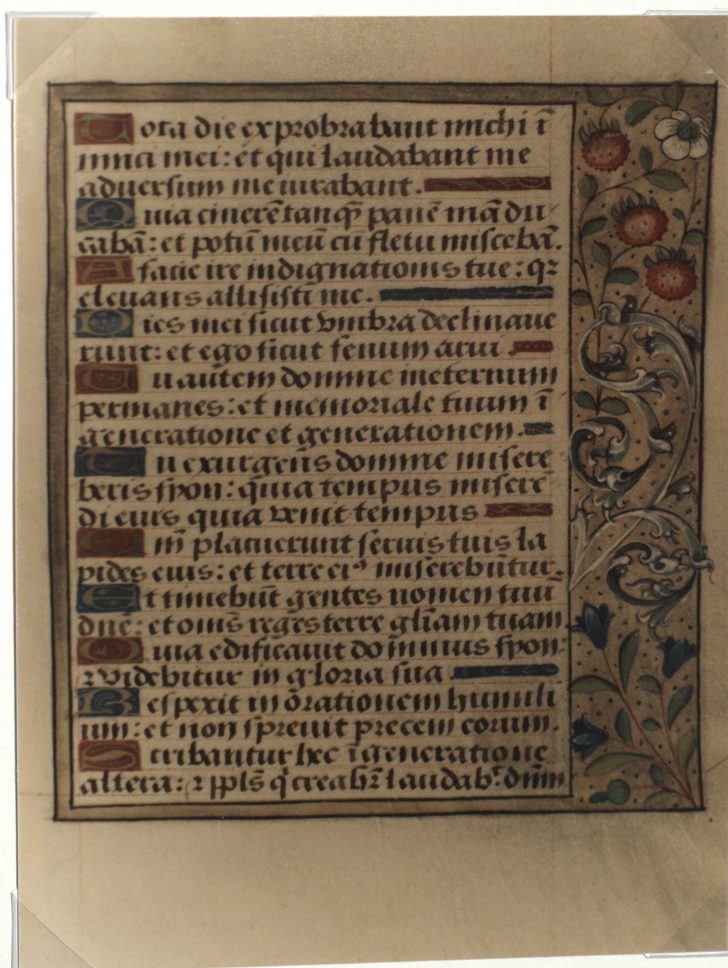 Tota die exprobrabant michi ī
imici mei: et qui laudabant me
adversum me iurabant.
Quia cinerē tanq̄ panē mādu
cabā: et potū meū cū fletu miscebā.
A facie ire indignationis tue: qꝛ
elevans allisisti me.
Dies mei sicut vmbra declinaue
runt: et ego sicut fenum arui
Tu autem domine ineternum
permanes: et memoriale tuum ī
generatione et generationem.
Tu exurgens domine misere
beris syon: quia tempus misere
di eius quia venit tempus
Qm̄ placuerunt seruis tuis la
pides eius: et terre eiꝰ miserebūtur.
Et timebūt gentes nomen tuū
dn̄e: et om̄s reges terre gl̄iam tuam
Quia edificauit dominus syon
⁊ videbitur in gloria sua
Respexit in orationem humili
um: et non spreuit precem eorum.
Scribantur hec ī generatione
altera: ⁊ ppl̄s q̇ creabꝛ̄ laudabꝰ dn̄m